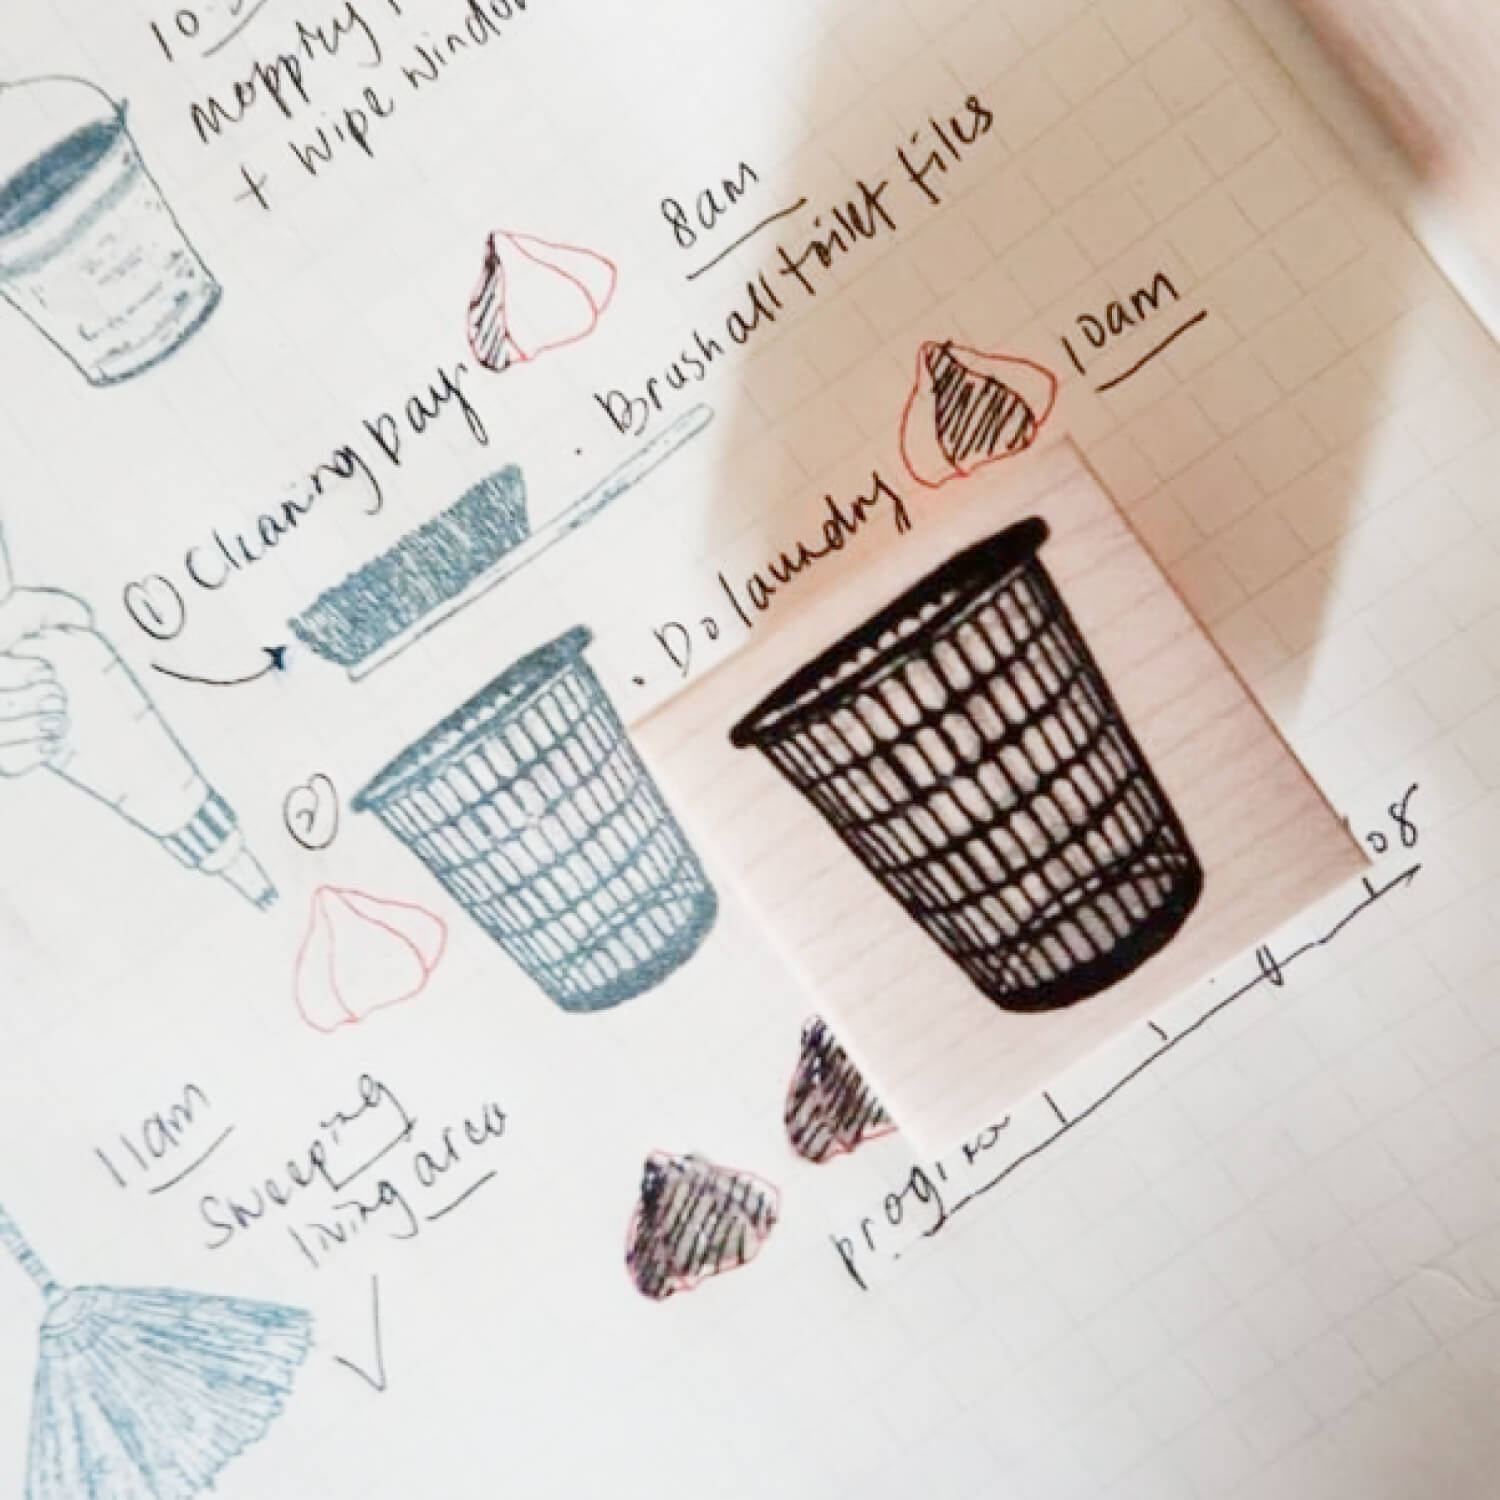 mopping
+ wipe window
8am
① Cleaning Day.
. Brush all toilet tiles
10am
. Do laundry
②
08
11am
Sweeping
living area